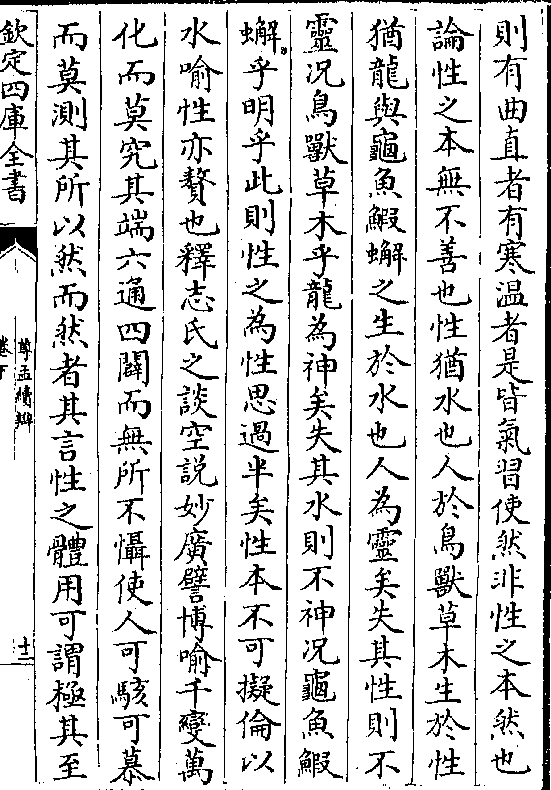 則有曲直者有寒温者是皆氣習使然非性之本然也
論性之本無不善也性猶水也人於鳥獸草木生於性
猶龍與龜魚鰕蠏之生於水也人為靈矣失其性則不
靈况鳥獸草木乎龍為神矣失其水則不神况龜魚鰕
蠏乎明乎此則性之為性思過半矣性本不可擬倫以
水喻性亦贅也釋志氏之談空説妙廣譬博喻千變萬
化而莫究其端六通四闢而無所不懾使人可駭可慕
而莫測其所以然而然者其言性之體用可謂極其至
欽定四庫全書
尊孟續辨
卷下
十二